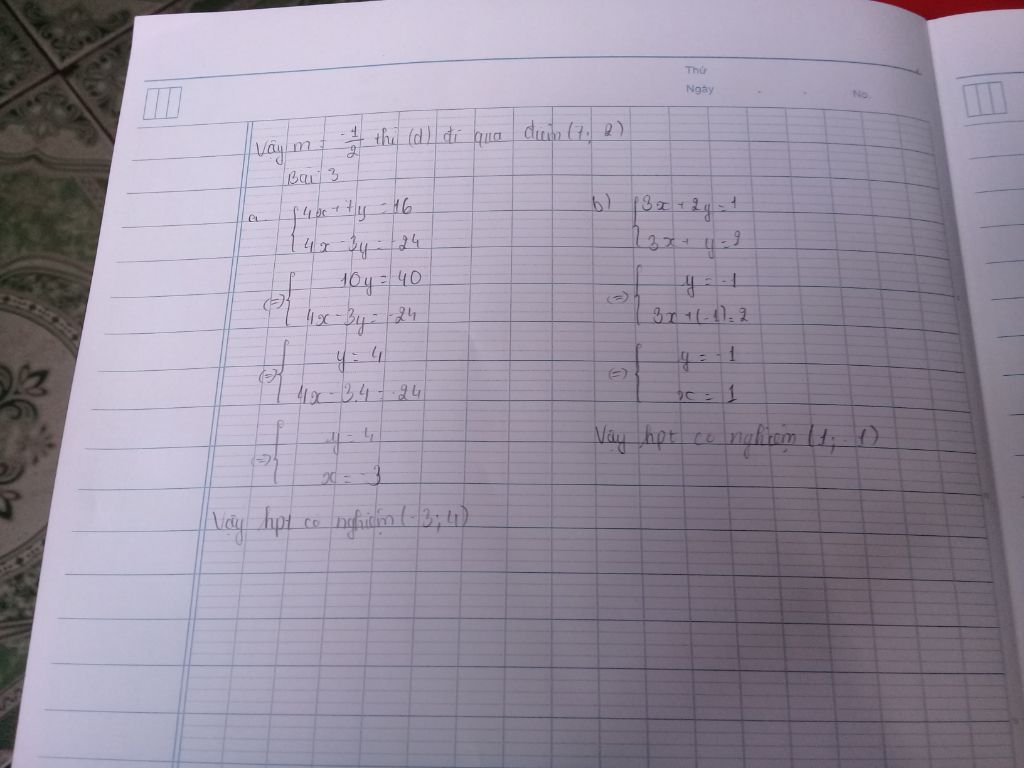 Thứ
Ngày . . No.
Vậy m = -1/2 thì (d) đi qua điểm (7; 2)
Bài 3
a. { 4x + 7y = 16
4x - 3y = -24
(=) { 10y = 40
4x - 3y = -24
(=) { y = 4
4x - 3.4 = -24
(=) { y = 4
x = -3
Vậy hpt có nghiệm (-3; 4)
b) { 3x + 2y = 1
3x + y = 2
(=) { y = -1
3x + (-1) = 2
(=) { y = -1
x = 1
Vậy hpt có nghiệm (1; -1)